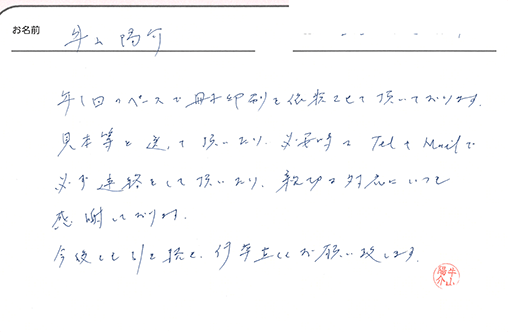 お名前 牛山陽介
年1回のペースで冊子印刷を依頼させて頂いております。
見本等を送って頂いたり、必要時にTelやMailで
必ず連絡をして頂いたり、親切な対応にいつも
感謝しております。
今後とも引き続き、何卒宜しくお願い致します。
牛山陽介